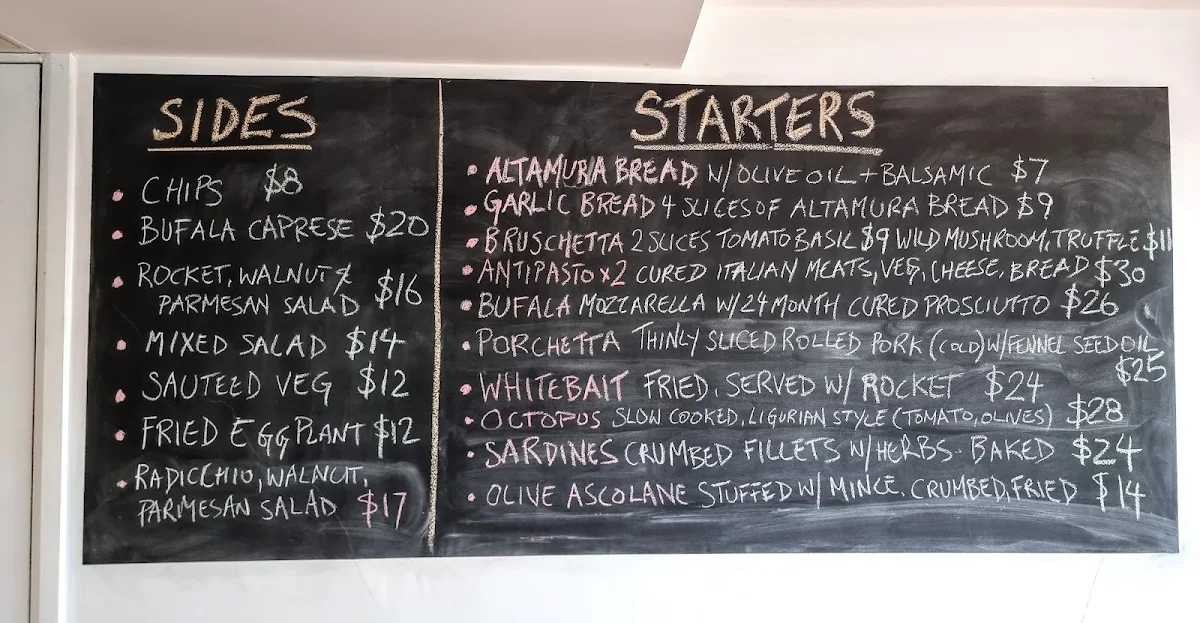 SIDES
CHIPS $8
BUFALA CAPRESE $20
ROCKET, WALNUT &
PARMESAN SALAD $16
MIXED SALAD $14
SAUTEED VEG $12
FRIED EGGPLANT $12
RADICCHIO, WALNUT,
PARMESAN SALAD $17
STARTERS
ALTAMURA BREAD W/OLIVE OIL + BALSAMIC $7
GARLIC BREAD 4 SLICES OF ALTAMURA BREAD $9
BRUSCHETTA 2 SLICES TOMATO BASIL $9 WILD MUSHROOM, TRUFFLE $11
ANTIPASTO x2 CURED ITALIAN MEATS, VEG, CHEESE, BREAD $30
BUFALA MOZZARELLA W/24 MONTH CURED PROSCIUTTO $26
PORCHETTA THINLY SLICED ROLLED PORK (COLD) W/FENNEL SEED OIL
$25
WHITEBAIT FRIED, SERVED W/ ROCKET $24
OCTOPUS SLOW COOKED, LIGURIAN STYLE (TOMATO, OLIVES) $28
SARDINES CRUMBED FILLETS W/HERBS - BAKED $24
OLIVE ASCOLANE STUFFED W/ MINCE, CRUMBED, FRIED $14